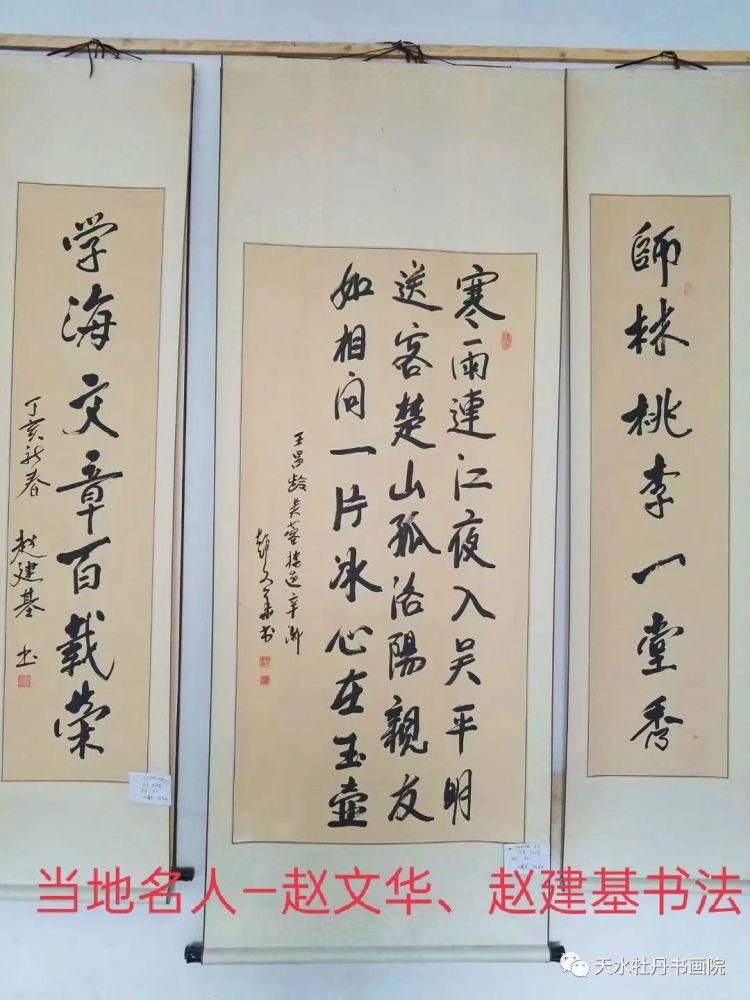 師林桃李一堂秀
寒雨連江夜入吴平明
送客楚山孤洛陽親友
如相问一片冰心在玉壶
王昌龄芙蓉楼送辛渐
赵文华书
学海文章百載荣
丁亥新春 赵建基 书
当地名人-赵文华、赵建基书法
天水牡丹书画院